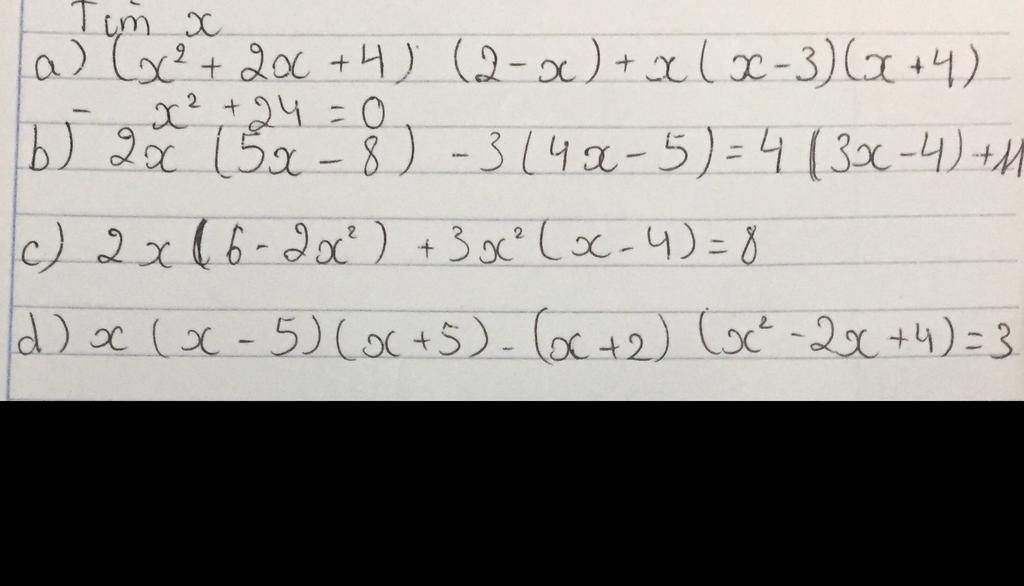 Tìm x
a) (x² + 2x + 4) (2 - x) + x(x - 3)(x + 4)
- x² + 24 = 0
b) 2x (5x - 8) - 3(4x - 5) = 4(3x - 4) + 11
c) 2x(6 - 2x²) + 3x²(x - 4) = 8
d) x(x - 5)(x + 5) - (x + 2)(x² - 2x + 4) = 3